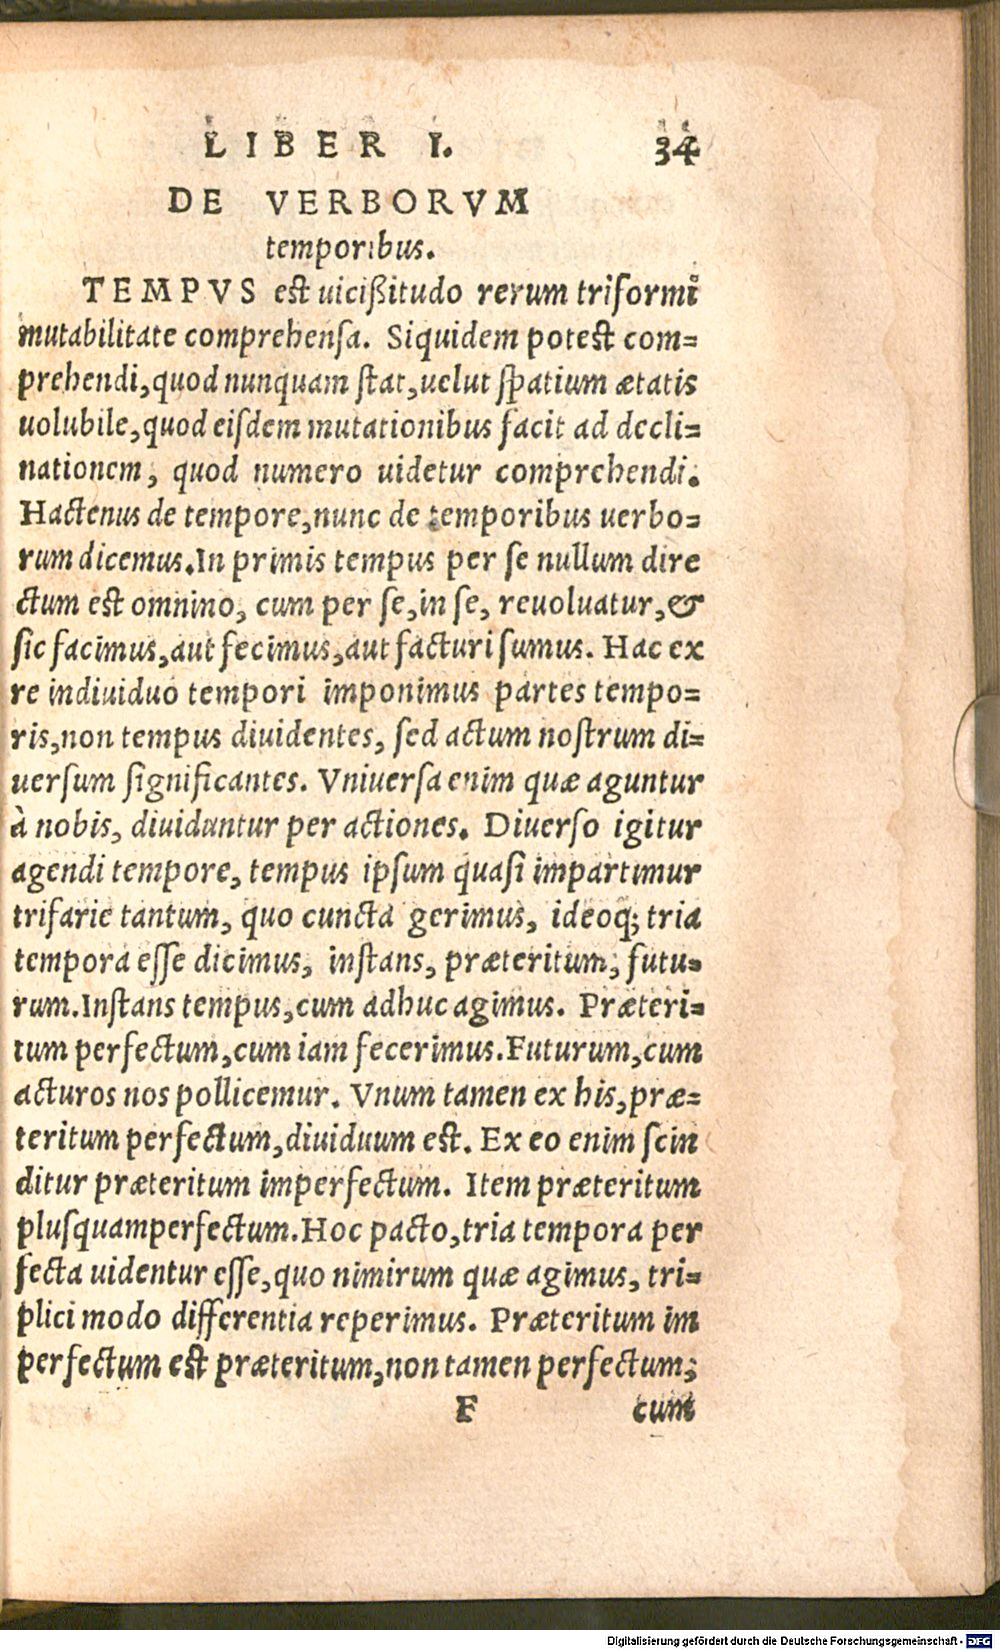 LIBER I. 34
DE VERBORVM
temporibus.
TEMPVS est uicißitudo rerum triformi
mutabilitate comprehensa. Siquidem potest com=
prehendi, quod nunquam stat, uelut spatium ætatis
uolubile, quod eisdem mutationibus facit ad decli=
nationem, quod numero uidetur comprehendi.
Hactenus de tempore, nunc de temporibus uerbo=
rum dicemus. In primis tempus per se nullum dire
ctum est omnino, cum per se, in se, reuoluatur, &
sic facimus, aut fecimus, aut facturi sumus. Hac ex
re indiuiduo tempori imponimus partes tempo=
ris, non tempus diuidentes, sed actum nostrum di=
uersum significantes. Vniuersa enim quæ aguntur
à nobis, diuiduntur per actiones. Diuerso igitur
agendi tempore, tempus ipsum quasi impartimur
trifarie tantum, quo cuncta gerimus, ideoq; tria
tempora esse dicimus, instans, præteritum, futu=
rum. Instans tempus, cum adhuc agimus. Præteri=
tum perfectum, cum iam fecerimus. Futurum, cum
acturos nos pollicemur. Vnum tamen ex his, præ=
teritum perfectum, diuiduum est. Ex eo enim scin
ditur præteritum imperfectum. Item præteritum
plusquamperfectum. Hoc pacto, tria tempora per
fecta uidentur esse, quo nimirum quæ agimus, tri=
plici modo differentia reperimus. Præteritum im
perfectum est præteritum, non tamen perfectum;
F cum
Digitalisierung gefördert durch die Deutsche Forschungsgemeinschaft - DFG